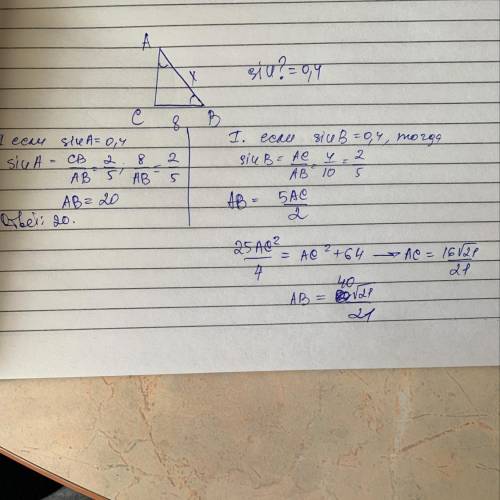 A
x
sin? = 0,4
C
8
B
I если sinA = 0,4
sinA = CB/AB = 2/5; 8/AB = 2/5
AB = 20
Ответ: 20.
I. если sinB = 0,4, тогда
sinB = AC/AB = 4/10 = 2/5
AB = 5AC/2
25AC²/4 = AC² + 64 → AC = 16√21/21
AB = 40√21/21